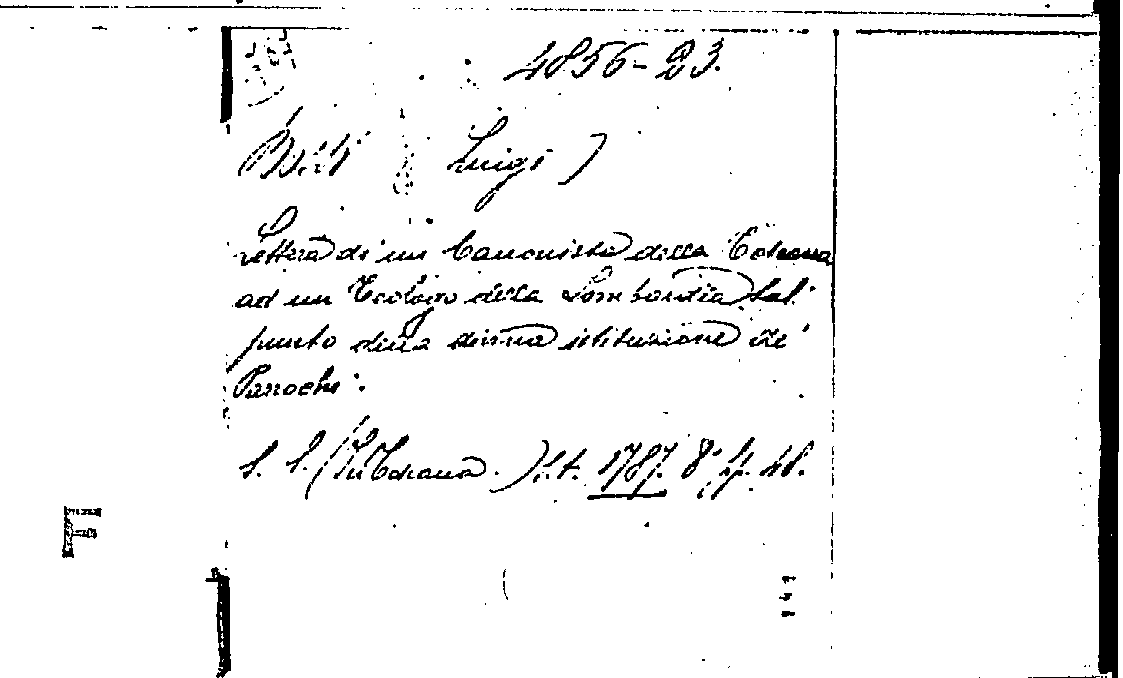 4856-23.
Luigi)
Lettera di un Canonista della Toscana
ad un Teologo della Lombardia sul
punto della divina istituzione de'
Parochi.
S. l. (In Toscana.) s.t. 1787. 8° pp. 48.
F